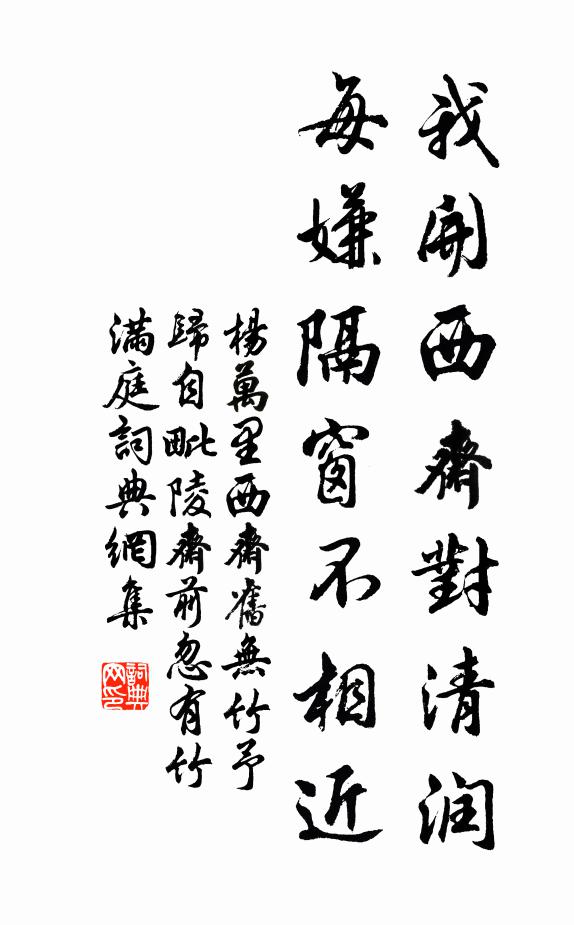 我開西齋對清潤
每嫌隔窗不相近
楊萬里西齋舊無竹予
歸自毗陵齋前忽有竹
滿庭詞典網集
詞典
网印